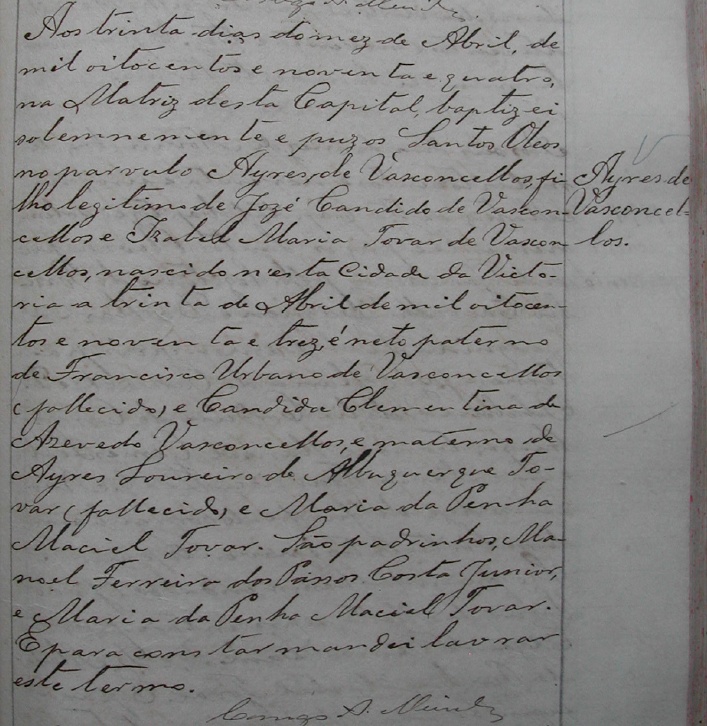 Aos trinta dias do mez de Abril, de
mil oitocentos e noventa e quatro,
na Matriz desta Capital, baptizei
solemnemente e puz os Santos Oleos
no parvulo Ayres, de Vasconcellos, fi
lho legitimo de Jozé Candido de Vascon-
cellos e Izabel Maria Tovar de Vascon
cellos, nascido nesta Cidade da Victo-
ria a trinta de Abril de mil oitocen-
tos e noventa e trez, é neto paterno
de Francisco Urbano de Vasconcellos
(fallecido) e Candida Clementina de
Azevedo Vasconcellos, e materno de
Ayres Loureiro de Albuquerque To-
var (fallecido) e Maria da Penha
Maciel Tovar. São padrinhos, Ma-
noel Ferreira dos Passos Costa Junior,
e Maria da Penha Maciel Tovar.
E para constar mandei lavrar
este termo.
Conego A. Mendes
Ayres de
Vasconcel-
los.